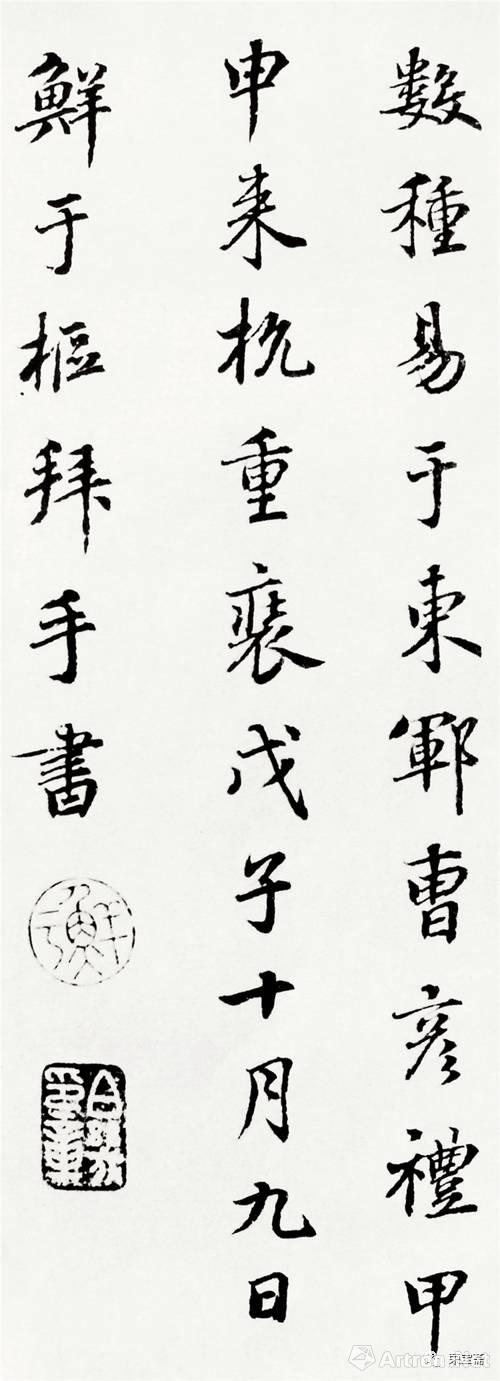 數種易于東鄆曹彥禮甲
申来杭重裝戊子十月九日
鮮于樞拜手書
鮮于